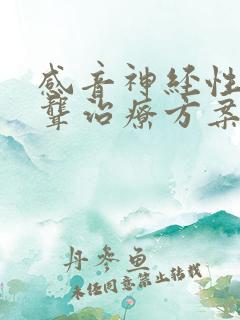 感音神经性
聋治疗方案
丹参鱼
未经同意禁止转载